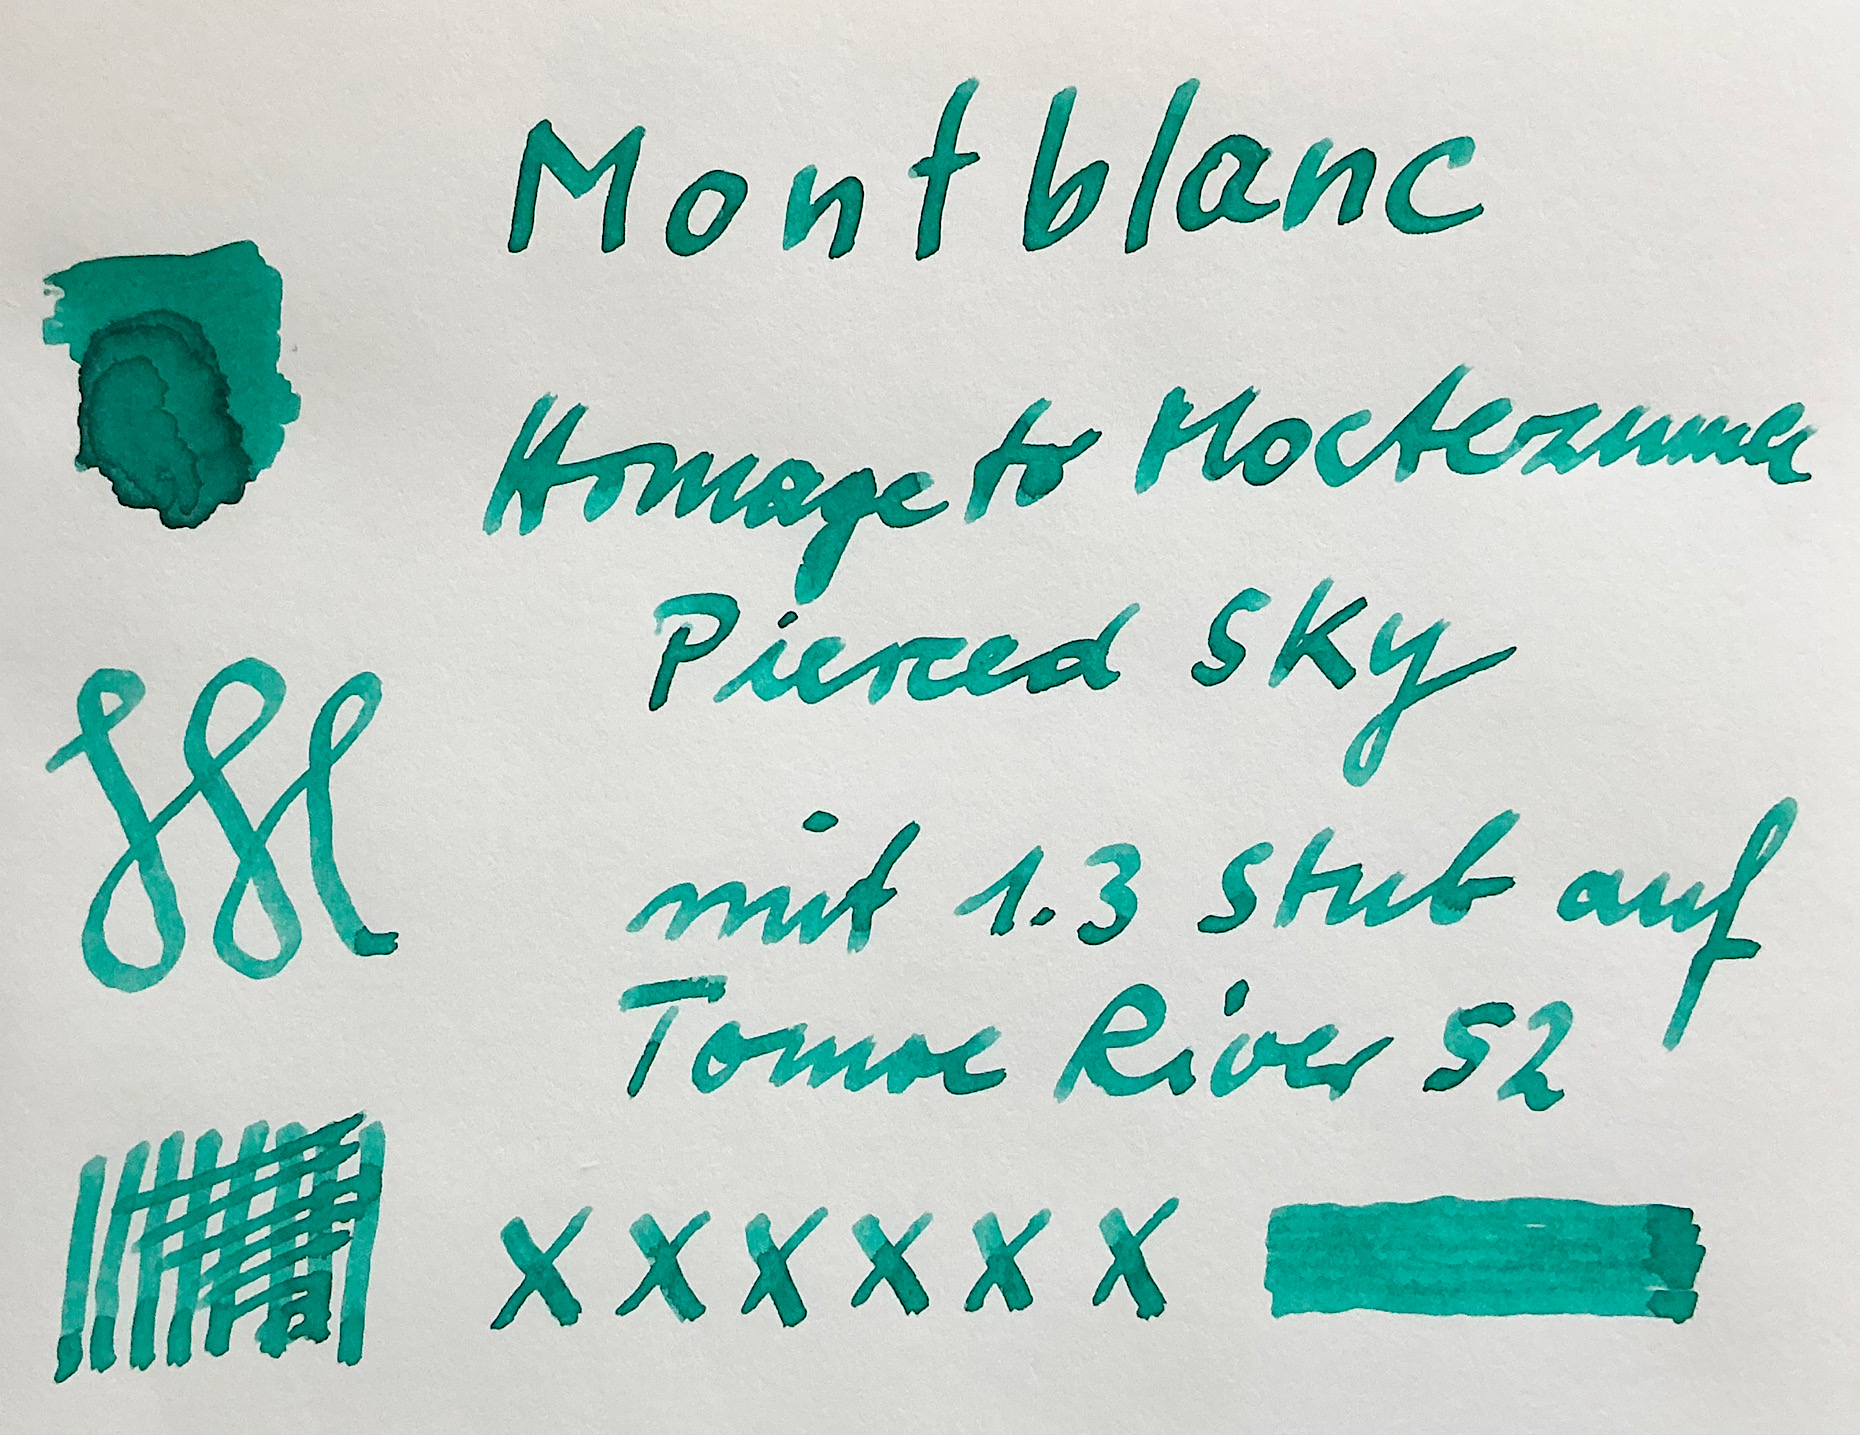 Montblanc
Homage to Moctezuma
Pierced Sky
mit 1.3 Stub auf
Tomoe River 52
x x x x x x